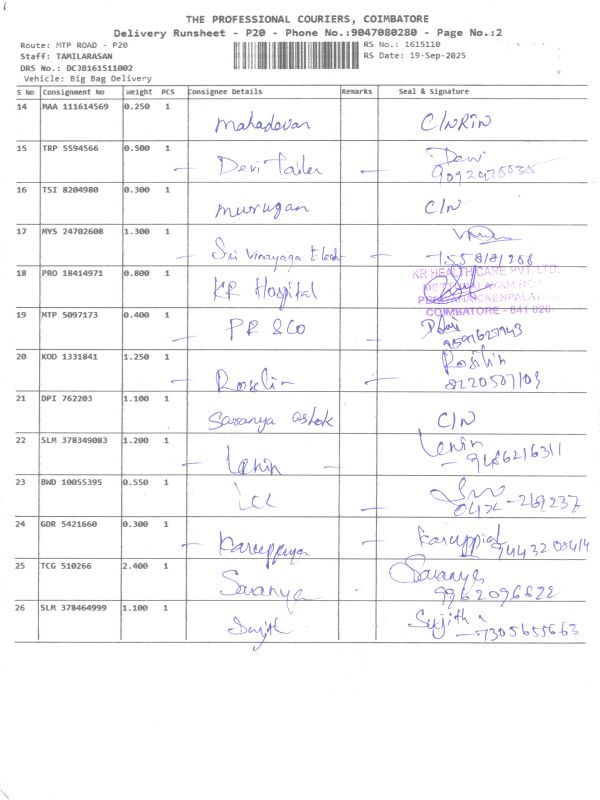 THE PROFESSIONAL COURIERS, COIMBATORE
Delivery Runsheet - P20 - Phone No.:9047080280 - Page No.:2
Route: MTP ROAD - P20 RS No.: 1615110
Staff: TAMILARASAN RS Date: 19-Sep-2025
DRS No.: DCJB161511002
Vehicle: Big Bag Delivery
S No Consignment No Weight PCS Consignee Details Remarks Seal & Signature
14 MAA 111614569 0.250 1 Mahadevan
15 TRP 5594566 0.500 1 Devi Tailer Devi
16 TSI 8204980 0.300 1 Murugan C/N
17 MYS 24702608 1.300 1 Sri Vinayaga Elect
18 PRO 18414971 0.800 1 KR Hospital KR HEALTHCARE PVT. LTD.
COIMBATORE - 641 020
19 MTP 5097173 0.400 1 PR & CO
20 KOD 1331841 1.250 1 Roselin Rosilin
21 DPI 762203 1.100 1 Saranya ashok C/N
22 SLM 378349083 1.200 1 Lenin Lenin
9486216311
23 BWD 10055395 0.550 1
24 GDR 5421660 0.300 1 Karuppaya Karuppiah
25 TCG 510266 2.400 1 Saranya Saranya
9962096622
26 SLM 378464999 1.100 1 Sujith Sujith
7305655663